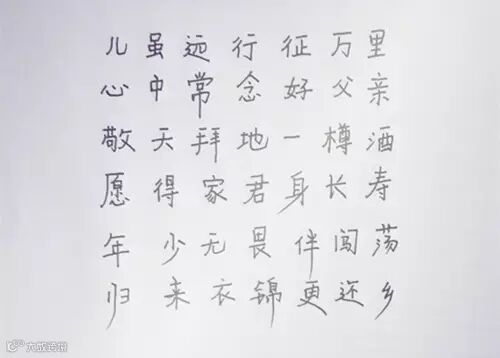 儿虽远行征万里
心中常念好父亲
敬天拜地一樽酒
愿得家君身长寿
年少无畏伴闯荡
归来衣锦更还乡
大成跨境